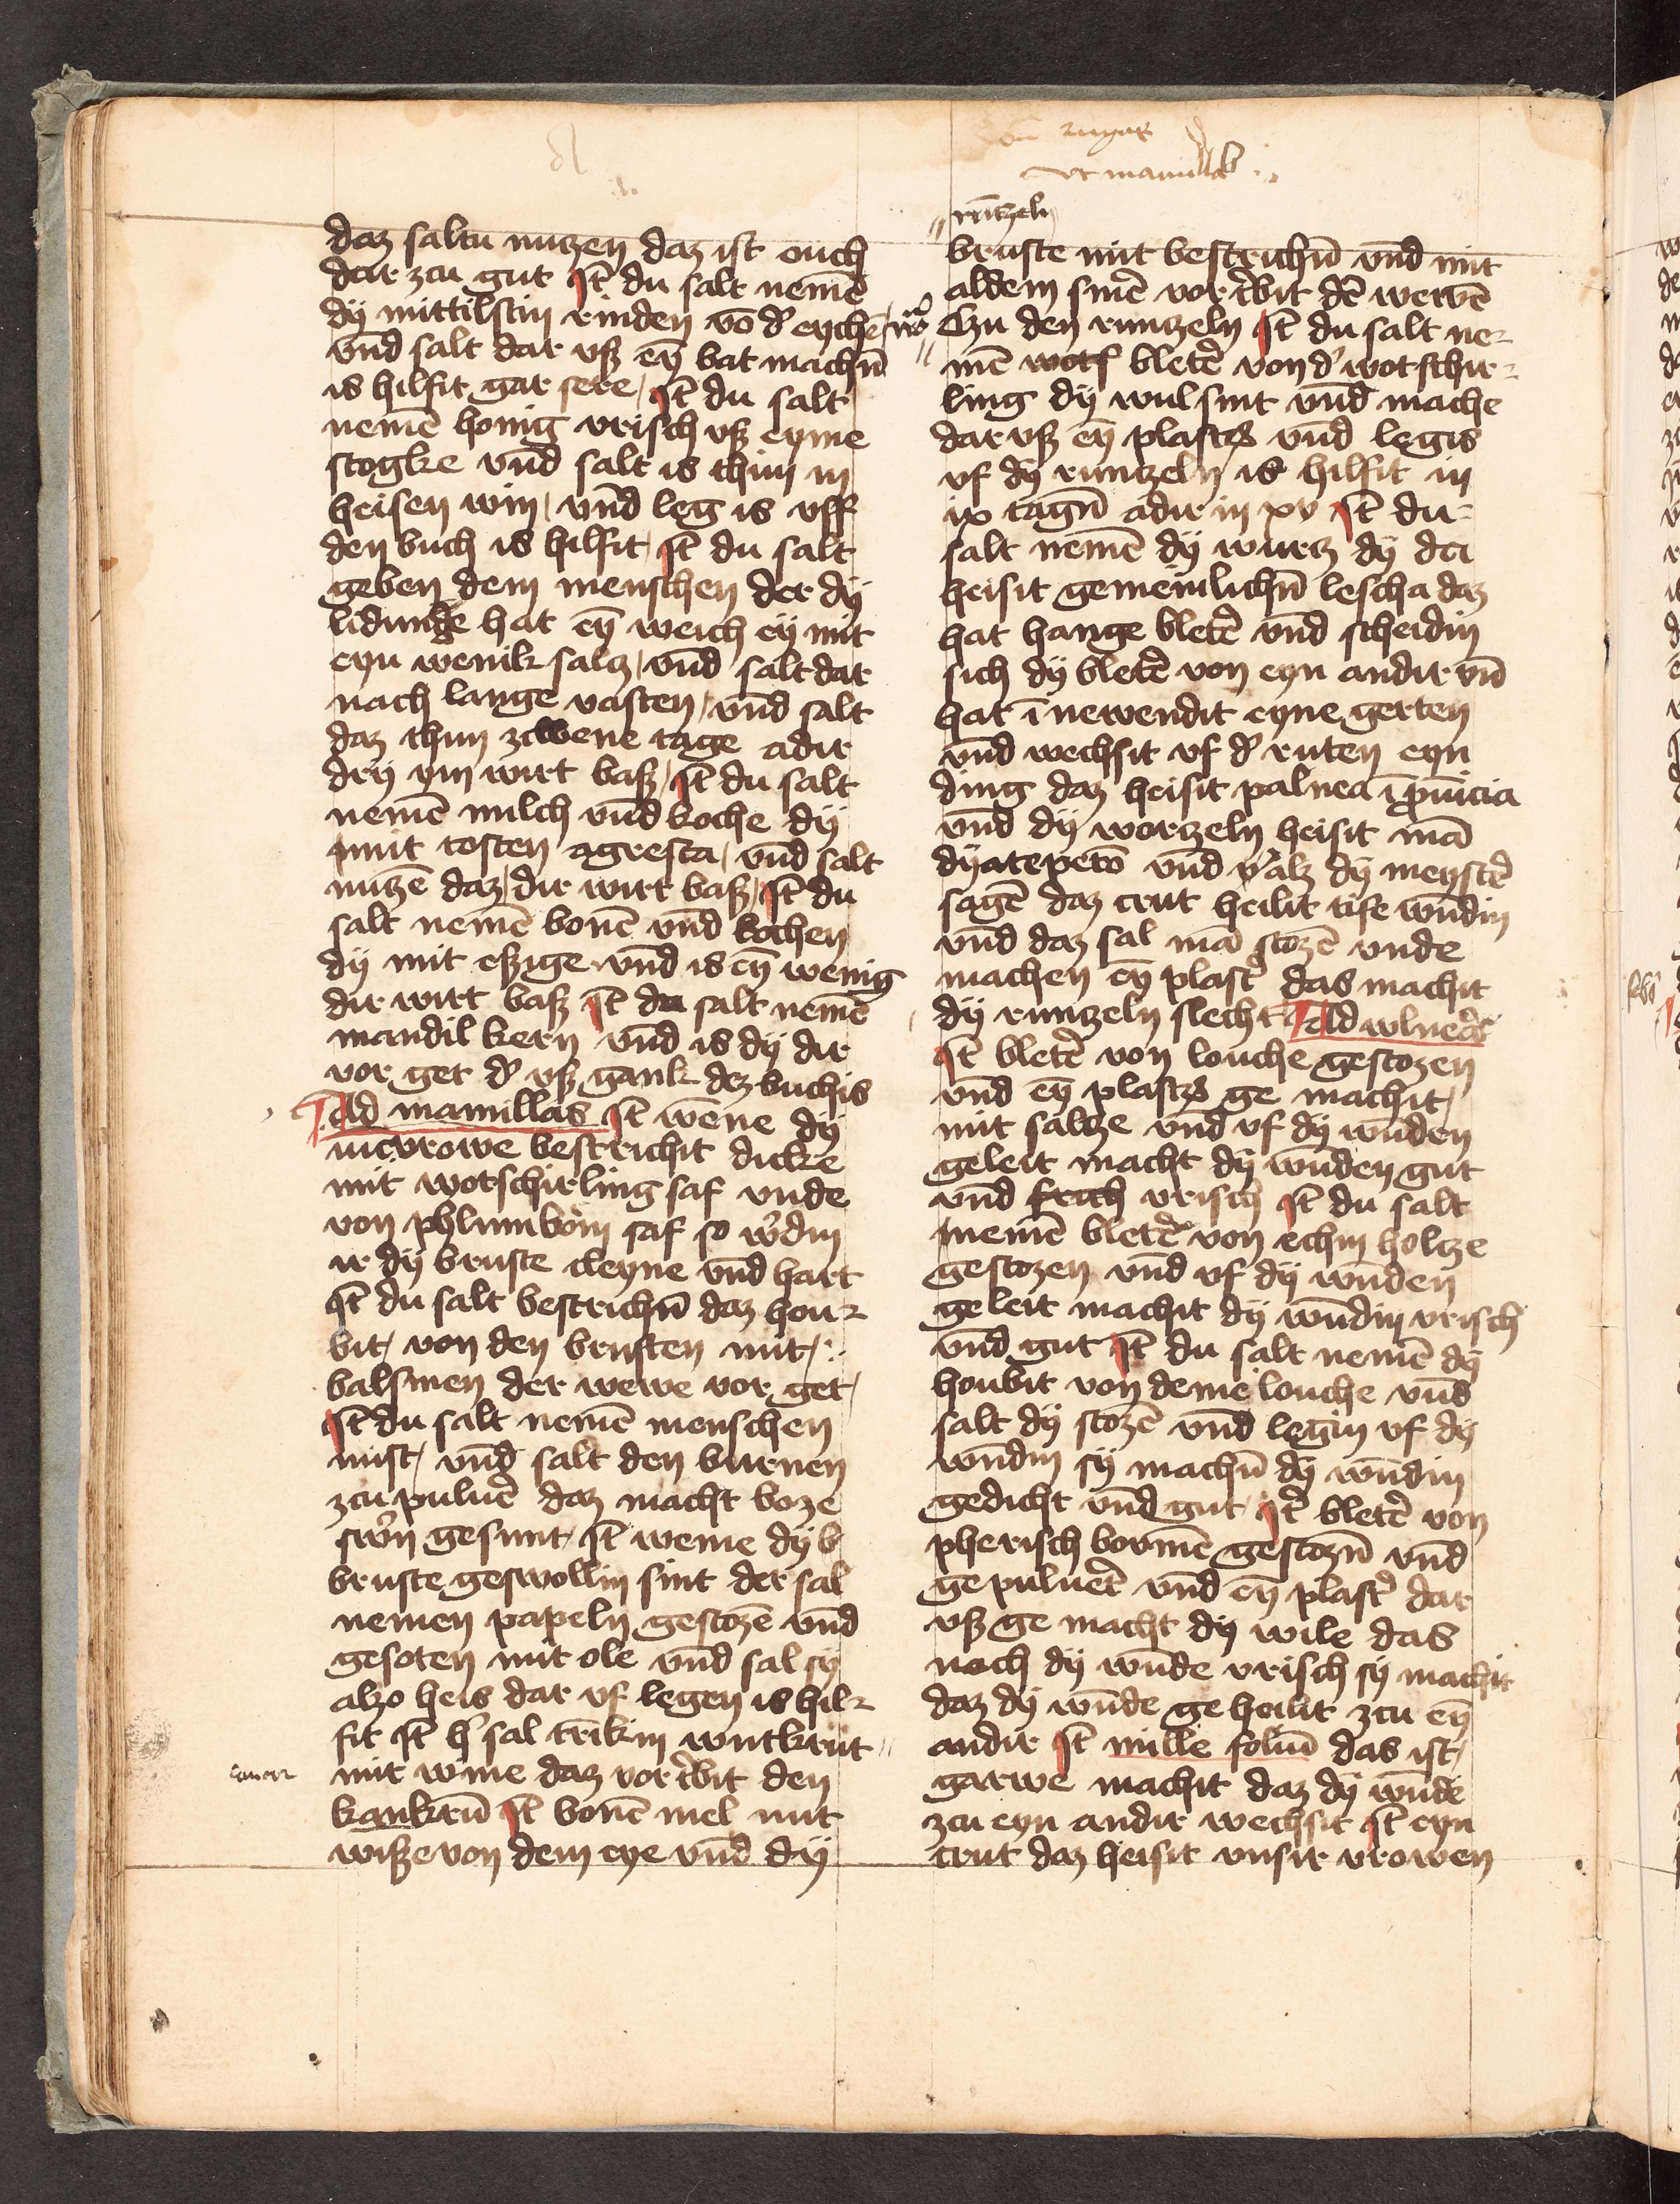 ut mamillas
daz saltu nuczen daz ist ouch
dar zcu gut Jt̄ du salt nemē
dÿ mittilstin rinden vō d' eychē
vnd salt dar vß eȳ bat machn̄
is hilfit gar sere Jt̄ du salt
nemē honig vrisch vß eyme
stogke vnd salt is thun in
heisen win vnd leg is vff
den buch is hilfit Jt̄ du salt
geben dem menschen der dÿ
lidunge hat eȳ weich eÿ mit
eyn wenik salcz vnd salt dar
nach lange vasten vnd salt
daz thun zcwene tage adir
drÿ ym wirt baß Jt̄ du salt
nemē milch vnd koche dÿ
mit tosten agresta vnd salt
nuczē daz dir wirt baß Jt̄ du
salt nemē bonē vnd kochen
dÿ mit eßige vnd is eȳ wenig
dir wirt baß Jt̄ du salt nemē
mandil kern vnd is dÿ dir
vor get d' vß gank dez buchis
Ad mamillas Jt̄ wēne dÿ
iucvrowe bestrichit dicke
mit wotschirling saf vnde
von phlumbom saf so w'din
ir dÿ bruste cleyne vnd hart
Jt̄ du salt bestrichn̄ daz hou
bit von den brusten mit
balsmen der wewe vor get
Jt̄ du salt nemē menschen
mist vnd salt den burnen
zcu puluē daz macht boze
sw'n gesunt Jt̄ weme dÿ b
bruste geswollin sint der sal
nemen papeln gestozē vnd
gesoten mit ole vnd sal sÿ
alzo heis dar vf legen is hil
fit Jt̄ h' sal trīkin wutkrut
mit wine daz vortⁱbit den
kankrū Jt̄ bonē mel mit
wiße von dem eye vnd dÿ
cancer
rūtzeln
bruste mit bestrichn̄ vnd mit
aldem smē vortⁱbit dē wewē
Czu den runczeln Jt̄ du salt ne
mē wotf bletē von d' wotschir
ling dÿ wul sint vnd mache
dar vß eȳ plast' vnd legis
vf dÿ runczeln is hilfit in
ix tagn̄ adir in xv Jt̄ du
salt nemē dÿ wurcz dÿ da
heisit gemeinlichn̄ lescha daz
hat hange bletē vnd scheidin
sich dÿ bletē von eyn andir vn̄
hat ī newendit eyne gerten
vnd wechsit vf d' ruten eyn
ding daz heisit palnea ī prouīcia
vnd dÿ worczeln heisit mā
dÿatepetō vnd alz dÿ meystē
sagē daz crut heilit tife wundin
vnd daz sal mā stozē vnde
machen eȳ plast' das machit
dÿ runczeln slecht Ad wlnera
Jt̄ bletē von louche gestozen
vnd eȳ plast' ge machit
mit salcze vnd vf dÿ wnden
geleit macht dÿ wūden gut
vnd frich vrisch Jt̄ du salt
nemē bletē von echin holcze
gestozen vnd vf dÿ wnden
geleit machit dÿ wūdin vrisch
vnd gut Jt̄ du salt nemē dÿ
houbit von deme louche vnd
salt dÿ stozē vnd legin vf dÿ
wūdin sÿ machn̄ dÿ wūdin
gedicht vnd gut Jt̄ bletē von
pherisch bormē gestozn̄ vnd
ge puluert vnd eȳ plast' dar
vß ge macht dÿ wile das
noch dÿ wūde vrisch sÿ machit
daz dÿ wūde ge heilit zcu eȳ
andir Jt̄ mille foliū das ist
garwe machit daz dÿ wūde
zcu eyn andir wechsit Jt̄ eyn
crut daz heisit vnsir vrowen